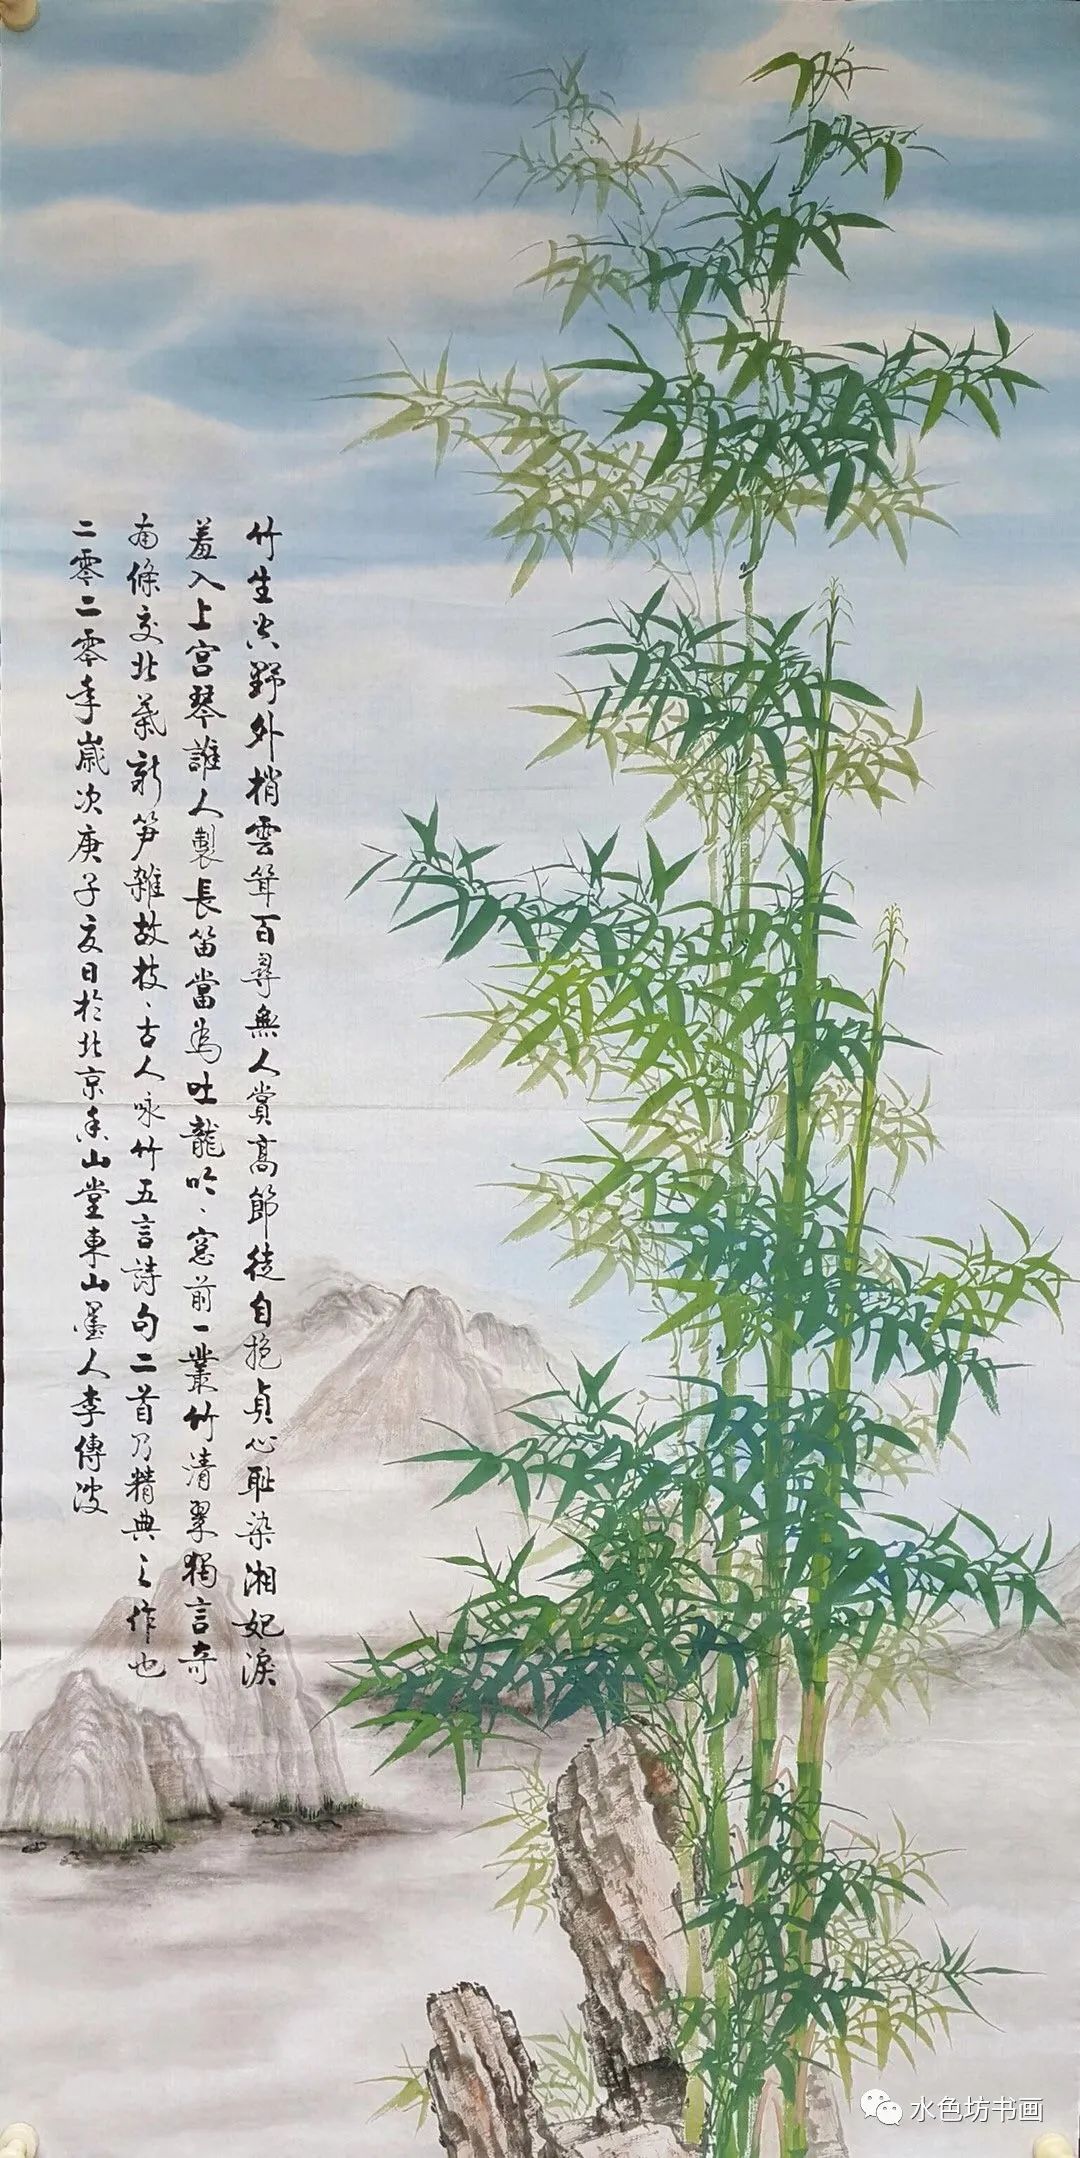 竹生空野外梢雲聳百尋無人賞高節徒自抱貞心恥染湘妃淚
羞入上宮琴誰人製長笛當為吐龍吟、窓前一叢竹清翠獨言奇
南條交北葉新笋雜故枝、古人咏竹五言詩句二首乃精典之作也
二零二零年歲次庚子夏日於北京香山堂東山墨人李傳波
水色坊书画